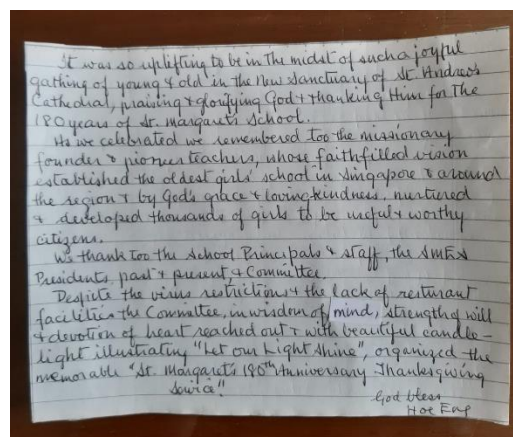 It was so uplifting to be in the midst of such a joyful
gathing of young & old in the New Sanctuary of St. Andrew's
Cathedral, praising & glorifying God & thanking Him for the
180 years of St. Margaret's School.
As we celebrated we remembered too the missionary
founder & pioneer teachers, whose faithfilled vision
established the oldest girls' school in Singapore & around
the region & by God's grace & lovingkindness, nurtured
& developed thousands of girls to be useful & worthy
citizens.
We thank too the School Principals & staff, the SMEXA
Presidents, past & present, & Committee.
Despite the virus restrictions & the lack of
facilities the Committee, in wisdom of mind, strength of will
& devotion of heart reached out & with beautiful candle-
light illustrating "Let our Light Shine", organized the
memorable "St. Margaret's 180th Anniversary Thanksgiving
Service".
God bless
Hoe Eng